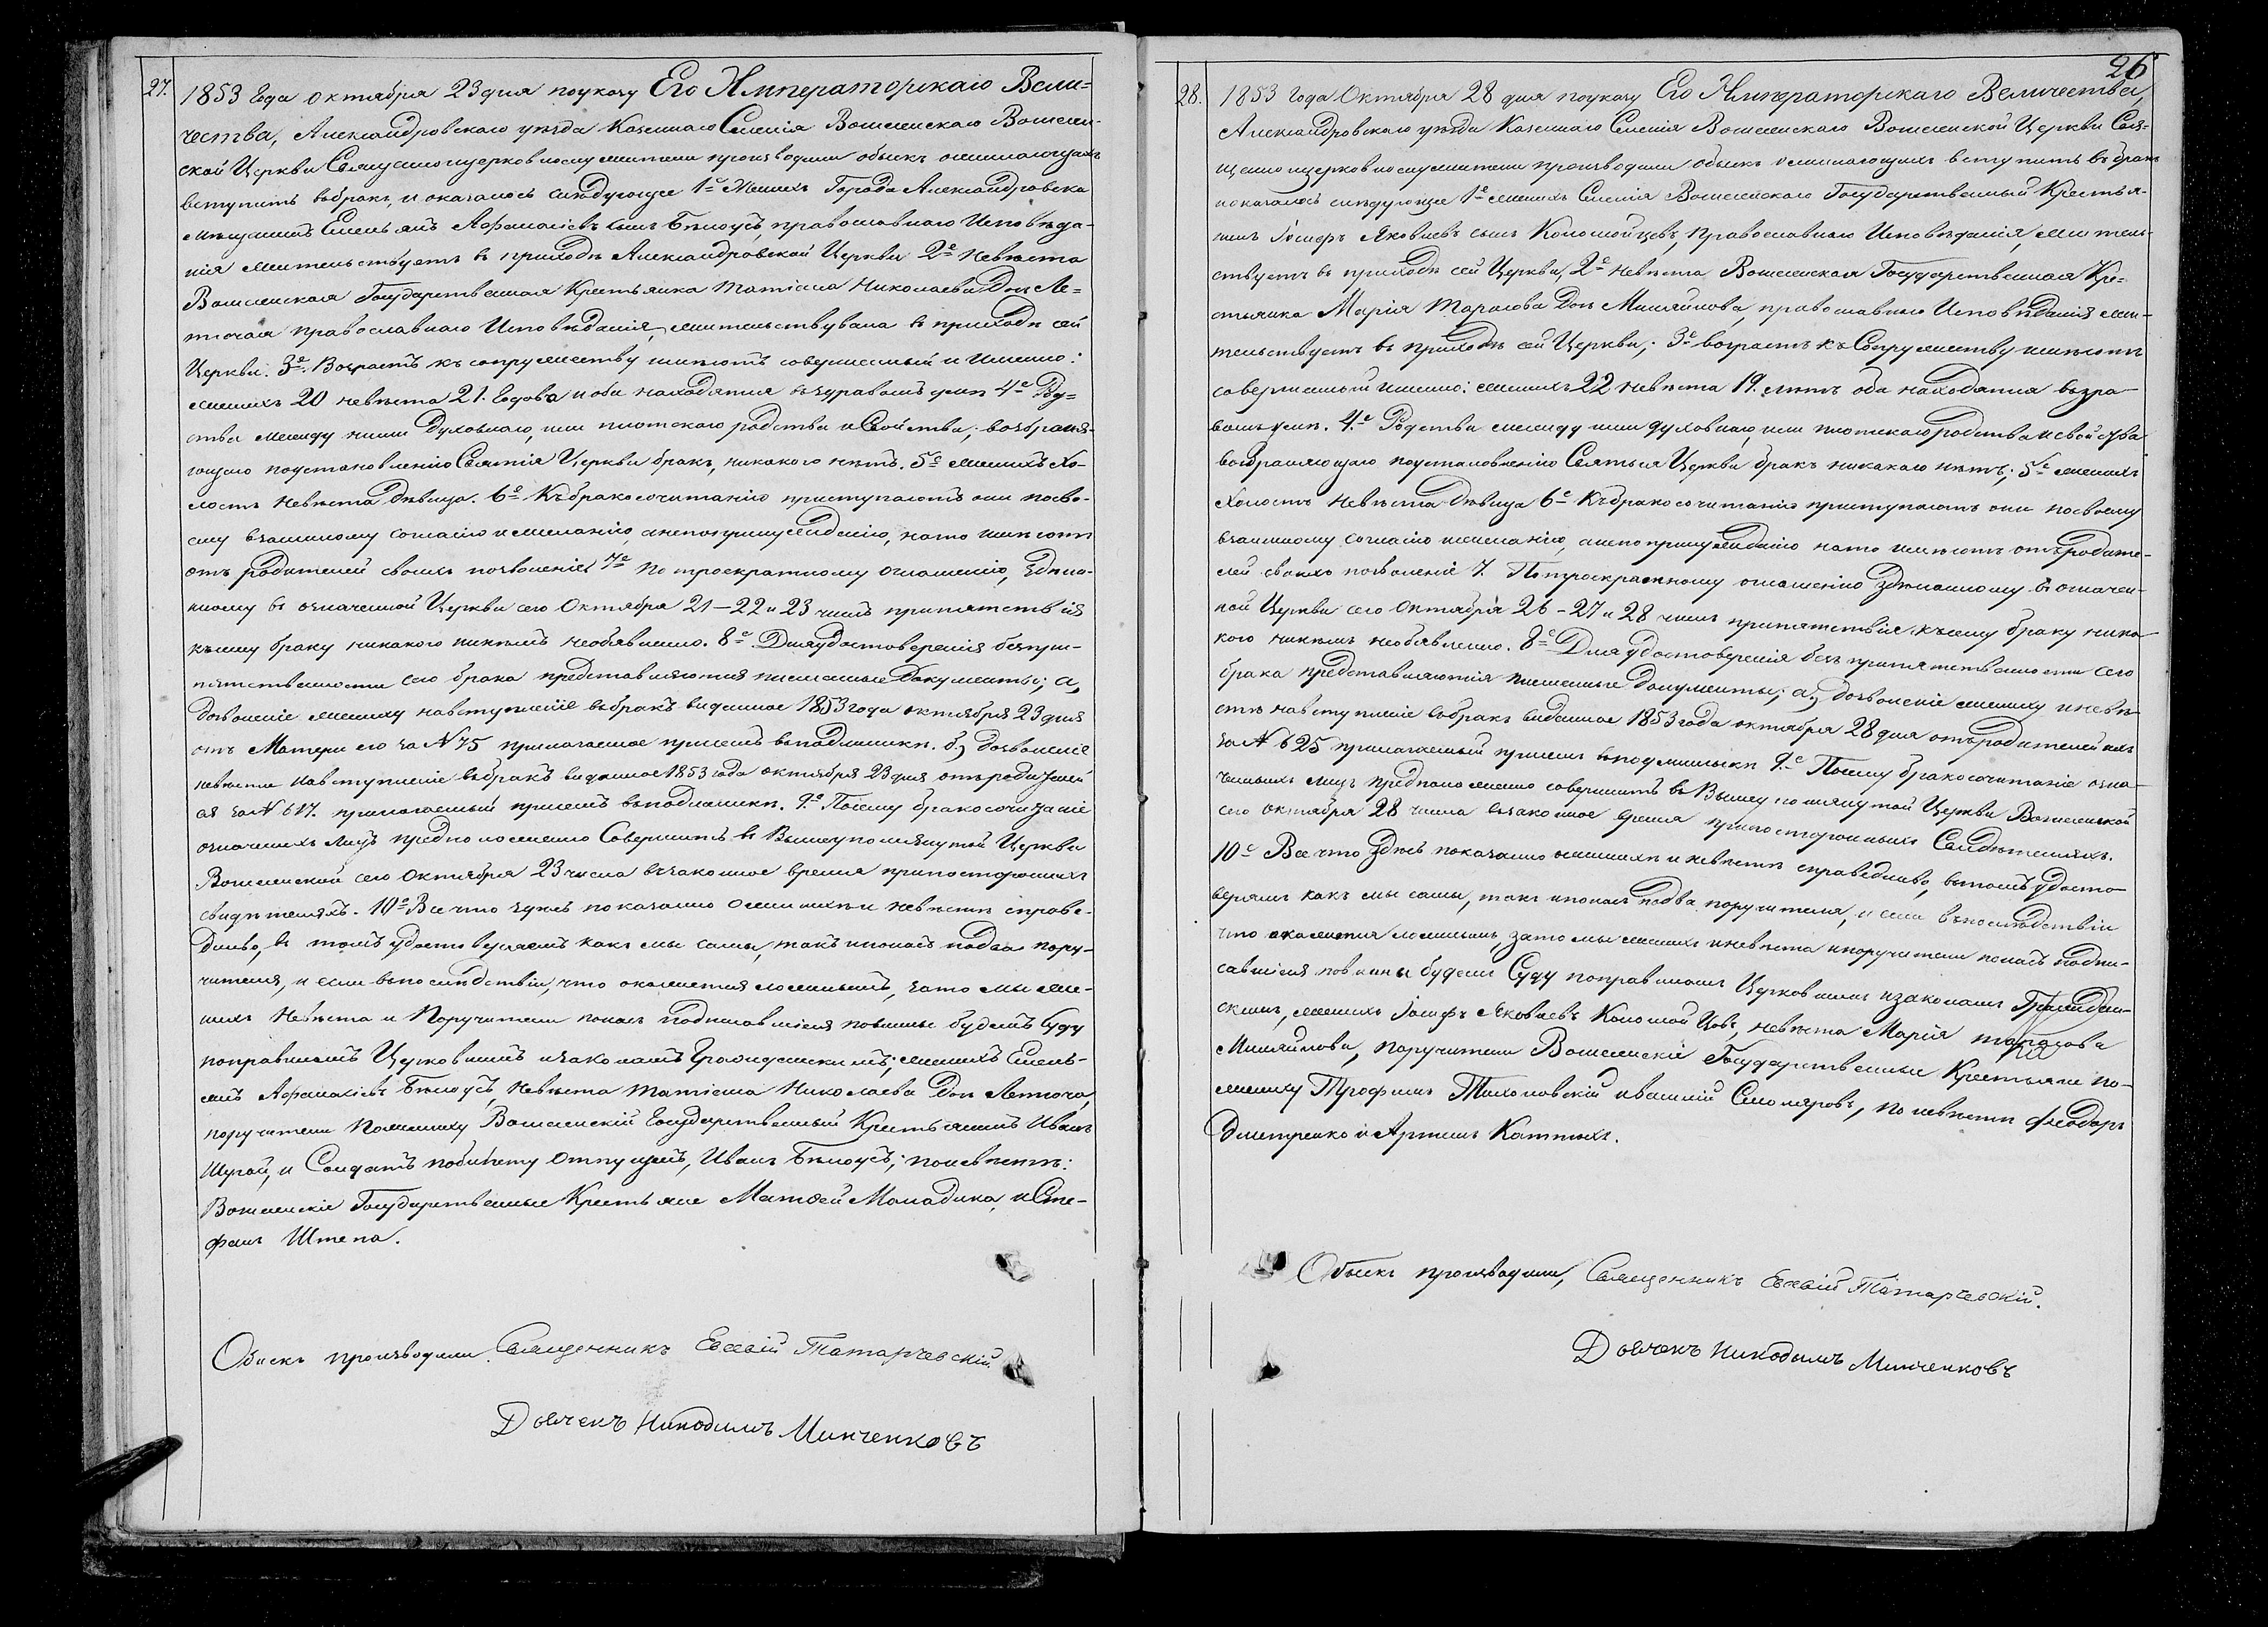 27.
1853 Года Октября 23 дня по указу Его Императорскаго Вели=
чества, Александровскаго уѣзда Казеннаго Селенія Вознесенскаго Вознесен-
ской Церкви Священноцерковнослужители производили обыскъ о желающихъ
вступить въ бракъ, и оказалось слѣдующее 1е Женихъ Города Александровска
мѣщанинъ Емельянъ Афанасіевъ сынъ Бѣлоусъ, православнаго Исповѣда-
нія жительствуетъ въ приходѣ Александровской Церкви 2е Невѣста
Вознесенская Государственная Крестьянка Татіана Николаева Дочь Ле=
точая православнаго Исповѣданія, жительствувала въ приходѣ сей
Церкви. 3е. Возрастъ къ супружеству имѣютъ совершенный и именно:
женихъ 20 невѣста 21. Годова и оба находятся въ здравомъ умѣ 4е Род=
ства между ними Духовнаго, или плотскаго родства и Свойства, возбраня-
ющаго по установленію Святыя Церкви бракъ, никакого нѣтъ. 5е женихъ Хо-
лостъ Невѣста Дѣвица. 6е Къ бракосочитанію приступаютъ они по сво-
ему взаимному согласію и желанію а не по принужденію, на то имѣютъ
отъ родителей своихъ позволеніе 7е По троекратному оглашенію, здѣла-
нному въ означенной Церкви сего Октября 21–22 и 23 чиселъ припятствія
къ сему браку никакого никѣмъ необявленно. 8е Для удостоверенія безпри-
пятственности сего брака представляются писменные Документы; а,
дозволеніе жениху на вступленіе въ бракъ виданное 1853 года октября 23 дня
отъ Матери его за N 75 прилагаемое присемъ въ подлиннике. б,) дозволеніе
невѣсте на вступленіе въ бракъ виданное 1853 года октября 23 дня отъ родителей
ея за N 617. прилагаемый присемъ въ подлиннике. 9е Посему бракосочитаніе
означеныхъ лицъ предположенно Совершить въ Вышеупомянутой Церкви
Вознесенской сего Октября 23 числа въ законное время при постороннихъ
свидѣтеляхъ. 10е Все что здѣсь показанно о женихѣ и невѣстѣ справе-
дливо, въ томъ удостоверяемъ какъ мы сами, такъ и по насъ по два пору-
чителя, и если въ послѣдствіи, что окажется ложнымъ, за то мы же-
нихъ Невѣста и Поручители по насъ подписавшіеся повинны будемъ Суду
по правиламъ Церковнымъ и законамъ Гражданскимъ; женихъ Емель-
янъ Афанасіевъ Бѣлоусъ, Невѣста Татіана Николаева Дочь Леточая,
поручители По жениху Вознесенскій Государственный Крестьянинъ Иванъ
Шугай, и Солдатъ по билету отпущенъ, Иванъ Бѣлоусъ; по невѣсте:
Вознесенскіе Государственные Крестьяне Матвей Маладика, и Сте-
фанъ Штепа.
Обискъ производили. Священникъ Евсевій Татарчевскій.
Дьячекъ Никодимъ Минченковъ
26
28.
1853 Года Октября 28 дня по указу Его Императорскаго Величества,
Александровскаго уѣзда Казеннаго Селенія Вознесенскаго Вознесенской Церкви Свя-
щенноцерковнослужители производили обыскъ о желающихъ вступить въ бракъ
и оказалось слѣдующее 1е женихъ Селенія Вознесенскаго Государственный Крестья-
нинъ Іосифъ Яковлевъ сынъ Коломойцевъ, Православнаго Исповѣданія, житель-
ствуетъ въ приходѣ сей Церкви, 2е Невѣста Вознесенская Государственная Кре-
стьянка Марія Тарасова Дочь Миняйлова, православнаго Исповѣданія жи-
тельствуетъ въ приходѣ сей Церкви; 3е возрастъ къ Супружеству имѣютъ
совершенный именно: женихъ 22 невѣста 19. лѣтъ оба находятся въ здра-
вомъ умѣ. 4.е Родства между ими духовнаго, или плотскаго родства и свойства
возбраняющаго по установленію Святыя Церкви бракъ никакаго нѣтъ; 5е женихъ
Холостъ Невѣста Дѣвица 6е Къ бракосочитанію приступаютъ они по своему
взаимному согласію и желанію, а не по принужденію на то имѣютъ отъ родите-
лей своихъ позволеніе 7. По троекратному оглашенію здѣланному въ означен-
ной Церкви сего Октября 26–27 и 28 чиселъ припятствія къ сему браку ника-
кого никѣмъ необявленно. 8е Для удостоверенія безъ припятственности сего
брака представляются писменные документы; а,) дозволеніе жениху и невѣ-
стѣ на вступленіе въ бракъ виданное 1853 года октября 28 дня отъ родителей ихъ
за N 625 прилагаемый присемъ въ подлинникѣ 9.е Посему бракосочитаніе озна-
ченныхъ лицъ предположенно совершить въ Вышеупомянутой Церкви Вознесенской
сего октября 28 числа въ законное время при постороннихъ Свидѣтеляхъ.
10е Все что здѣсь показанно о женихѣ и невѣстѣ справедливо, въ томъ удосто-
веряемъ какъ мы сами, такъ и по насъ по два поручителя, и если въ послѣдствіи
что окажется ложнымъ, за то мы женихъ и невѣста и поручители по насъ подпи-
савшіеся повинны будемъ Суду по правиламъ Церковнымъ и законамъ Граждан-
скимъ, женихъ Іосифъ Яковлевъ Коломойцовъ, невѣста Марія Тарасова
Миняйлова, поручители Вознесенскіе Государственные Крестьяне по-
жениху Трофимъ Тихоновскій и Смоляровъ, по невѣсте Феодоръ
Дмитренко и Артемъ Каттыхъ.
Обыскъ производили, Священникъ Евсевій Татарчевскій.
Дьячекъ Никодимъ Минченковъ